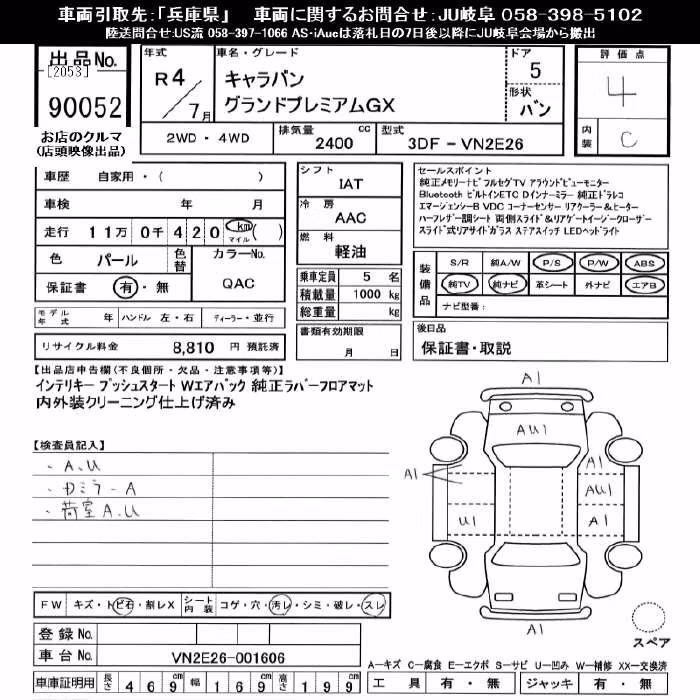 車両引取先:「兵庫県」 車両に関するお問合せ:JU岐阜 058-398-5102
陸送問合せ:US流 058-397-1066 AS-iAucは落札日の7日後以降にJU岐阜会場から搬出
出品No.
[2053]
90052
お店のクルマ
(店頭映像出品)
年式
R4/7月
車名・グレード
キャラバン
グランドプレミアムGX
ドア
5
形状
バン
2WD・4WD
排気量
2400 cc
型式
3DF-VN2E26
評価点
4
内装
C
車歴 自家用・( )
車検 年 月
走行 11万 0千 420 km マイル ( )
色 パール 色替
カラーNo.
QAC
保証書 有・無
モデル年式 年 ハンドル 左・右 ディーラー・並行
リサイクル料金 8,810 円 預託済
シフト
IAT
冷房
AAC
燃料
軽油
乗車定員 5 名
積載量 1000 kg
総重量 kg
書類有効期限
月 日
セールスポイント
純正メモリーナビ フルセグTV アラウンドビューモニター
Bluetooth ビルトインETC Dインナーミラー 純正ドラレコ
エマージェンシーB VDC コーナーセンサー リアクーラー&ヒーター
ハーフレザー調シート 両側スライド&リアゲートイージークローザー
スライド式リアサイドガラス ステアスイッチ LEDヘッドライト
装備品
S/R 純A/W P/S P/W ABS
純TV 純ナビ 革シート 外ナビ エアB
ナビ型番:
後日品
保証書・取説
【出品店申告欄(不良個所・欠品・注意事項等)】
インテリキー プッシュスタート Wエアバック 純正ラバーフロアマット
内外装クリーニング仕上げ済み
【検査員記入】
・A.U
・カミラ-A
・荷室A.U
A1
AU1
A1
A1
AU1
U1
A1
A1
スペア
FW キズ・トビ石・割レX シート内装 コゲ・穴・汚レ・シミ・破レ・スレ
登録No.
車台No. VN2E26-001606
車庫証明用 長さ 469cm 幅 169cm 高さ 199cm
A-キズ C-腐食 E-エクボ S-サビ U-凹み W-補修 XX-交換済
工具 有・無 ジャッキ 有・無